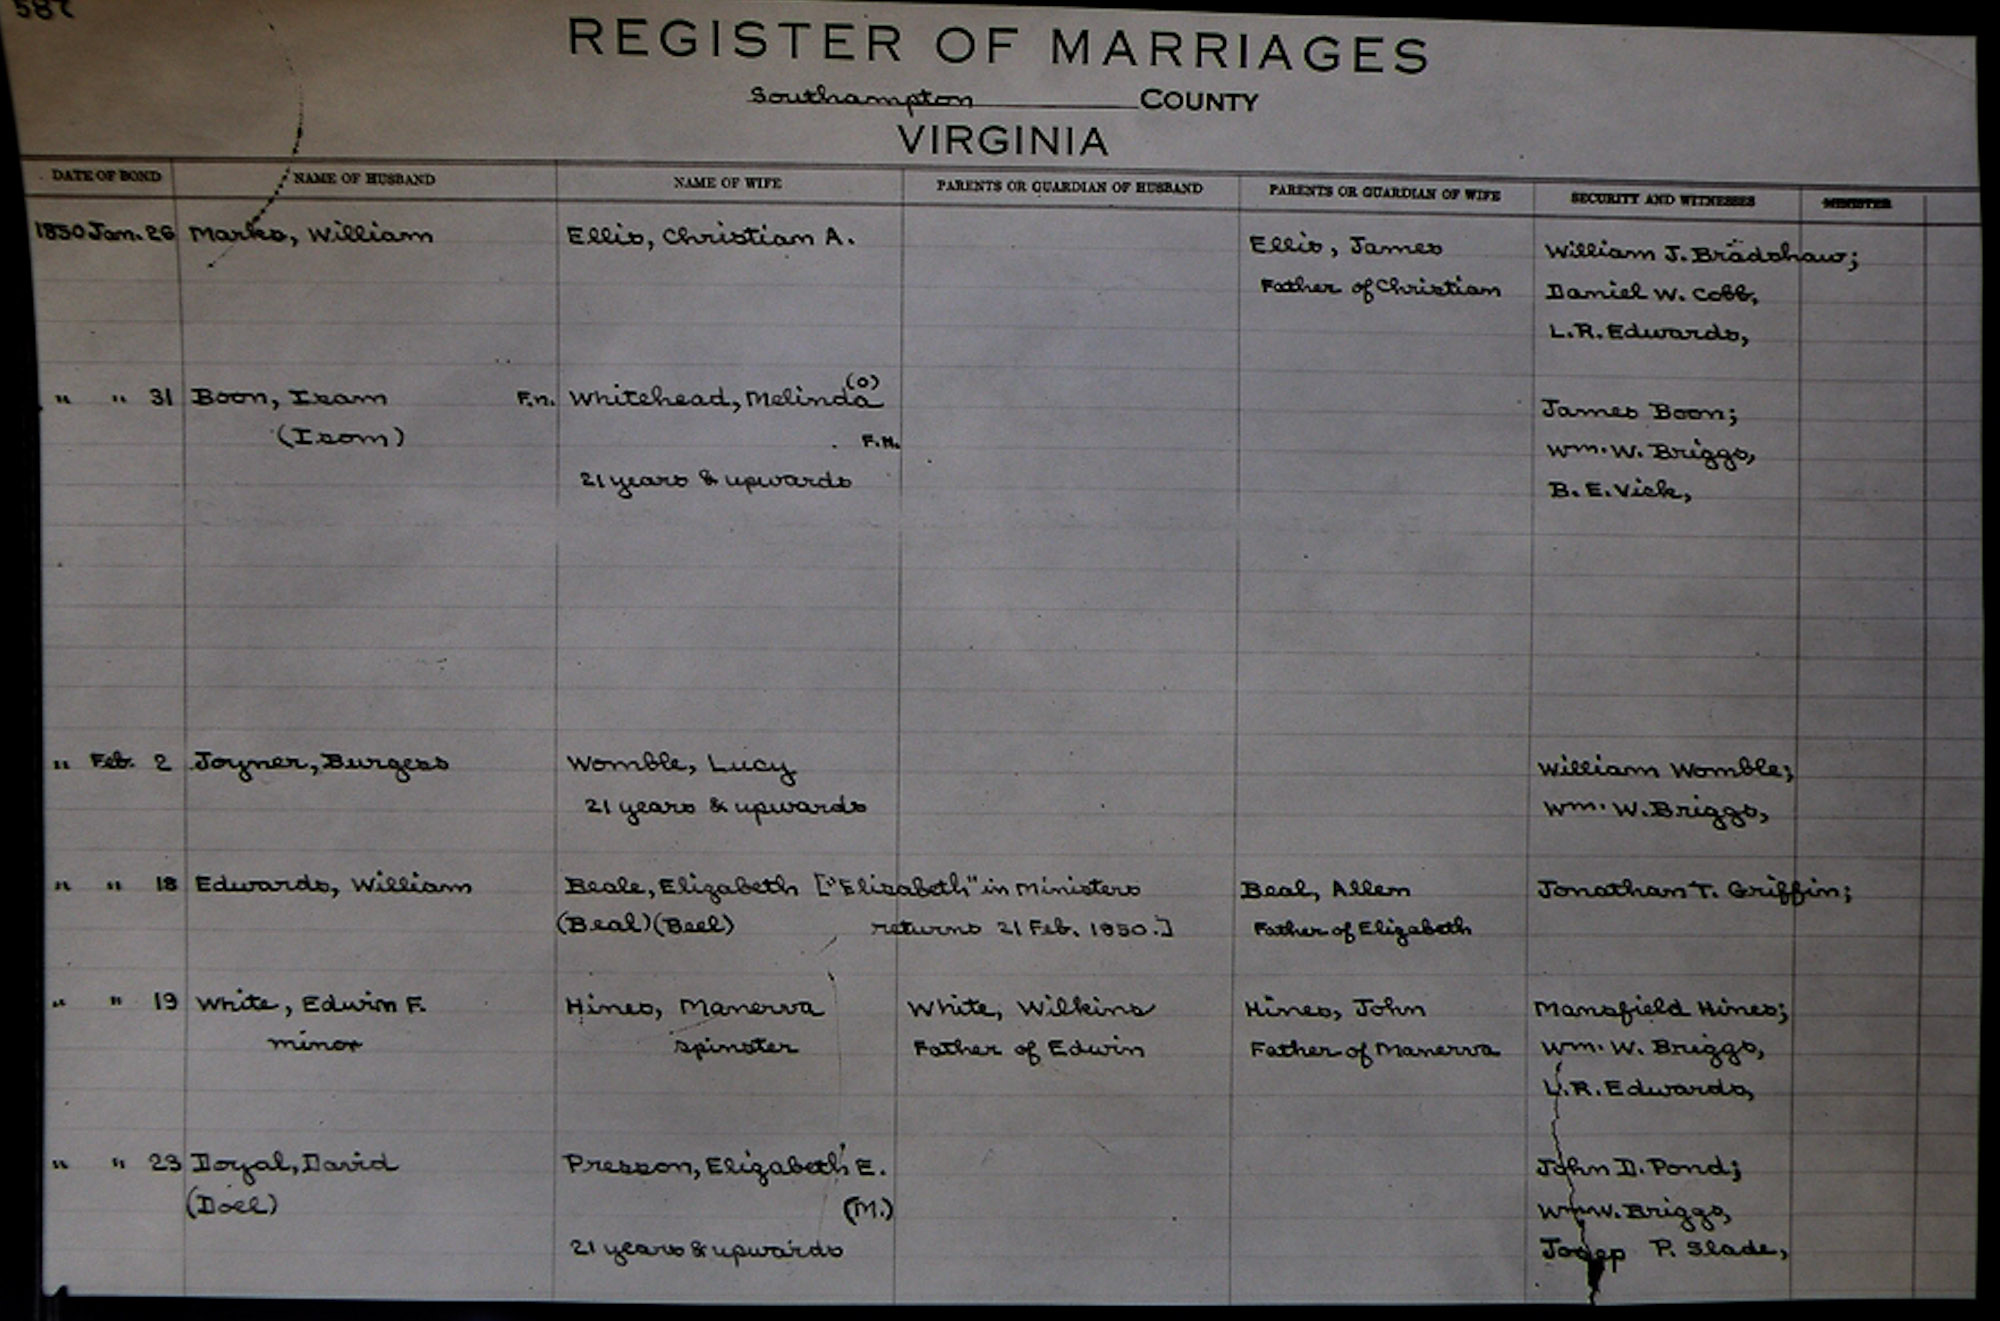 587
REGISTER OF MARRIAGES
Southampton COUNTY
VIRGINIA
DATE OF BOND NAME OF HUSBAND NAME OF WIFE PARENTS OR GUARDIAN OF HUSBAND PARENTS OR GUARDIAN OF WIFE SECURITY AND WITNESSES MINISTER
1850 Jan. 26 Marks, William Ellis, Christian A. Ellis, James William J. Bradshaw;
Father of Christian Daniel W. Cobb,
L.R. Edwards,
" " 31 Boon, Isam F.n. Whitehead, Melinda (o) James Boon;
(Isom) F.N. Wm. W. Briggs,
21 years & upwards B. E. Vick,
" Feb. 2 Joyner, Burgess Womble, Lucy William Womble;
21 years & upwards Wm. W. Briggs,
" " 18 Edwards, William Beale, Elizabeth ["Elisabeth" in Ministers Beal, Allen Jonathan T. Griffin;
(Beal) (Beel) returns 21 Feb. 1850.] Father of Elizabeth
" " 19 White, Edwin F. Hines, Manerva White, Wilkins Hines, John Mansfield Hines;
minor spinster Father of Edwin Father of Manerva Wm. W. Briggs,
L.R. Edwards,
" " 23 Doyal, David Presson, Elizabeth E. John D. Pond;
(Doel) (M.) Wm W. Briggs,
21 years & upwards Josep P. Slade,